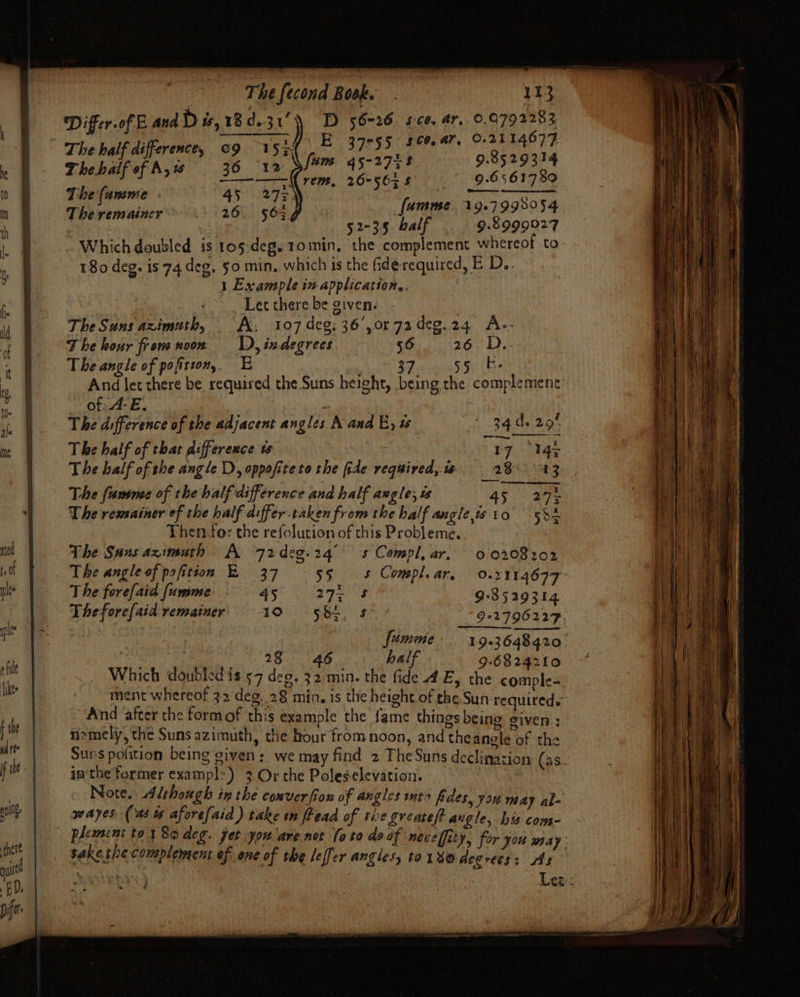 The second Book. 113
Differ.of E and D is, 18 d.31' D 56-26 s co. ar. 0.0792283
The half difference, 09 15½ E 37-55 s co. ar. 0.2114677
The half of A, is 36 12 sum 45-27½ s 9.8529314
rem. 26-56½ s 9.6561780
The summe 45 27½
The remainer 26 56½ summe 19.7998054
52-35 half 9.8999027
Which doubled is 105 deg. 10 min. the complement whereof to
180 deg. is 74 deg. 50 min. which is the side required, E D.
1 Example in application.
Let there be given.
The Suns azimuth, A. 107 deg. 36', or 72 deg. 24 A.
The hour from noon D, in degrees 56 26 D.
The angle of position, E 37 55 E.
And let there be required the Suns height, being the complement
of A E.
The difference of the adjacent angles A and E, is 34 d. 29'
The half of that difference is 17 14½
The half of the angle D, opposite to the side required, is 28 13
The summe of the half difference and half angle, is 45 27½
The remainer of the half differ. taken from the half angle, is 10 58½
Then for the resolution of this Probleme.
The Suns azimuth A 72 deg. 24 s Compl. ar. 0 0208202
The angle of position E 37 55 s Compl. ar. 0.2114677
The foresaid summe 45 27½ s 9.8529314
The foresaid remainer 10 58½ s 9.2796227
summe 19.3648420
28 46 half 9.6824210
Which doubled is 57 deg. 32 min. the side A E, the comple-
ment whereof 32 deg. 28 min. is the height of the Sun required.
And after the form of this example the same things being given:
namely, the Suns azimuth, the hour from noon, and the angle of the
Suns position being given: we may find 2 The Suns declination (as
in the former example) 3 Or the Poles elevation.
Note. Although in the conversion of angles into sides, you may al-
wayes (as is aforesaid) take in stead of the greatest angle, his com-
plement to 180 deg. yet you are not so to do of necessity, for you may
take the complement of one of the lesser angles, to 180 degrees: As
Let